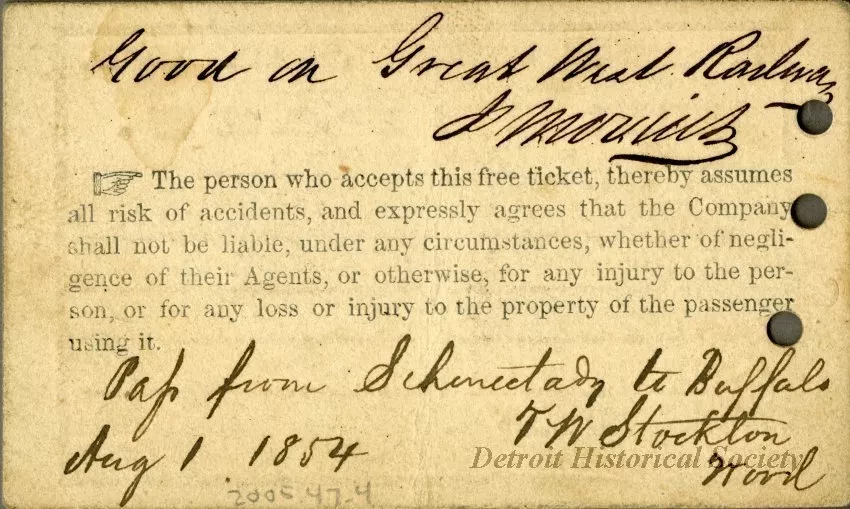 Good on Great West. Railway
☞ The person who accepts this free ticket, thereby assumes
all risk of accidents, and expressly agrees that the Company
shall not be liable, under any circumstances, whether of negli-
gence of their Agents, or otherwise, for any injury to the per-
son, or for any loss or injury to the property of the passenger
using it.
Pass from Schenectady to Buffalo
T W Stockton
Aug 1 1854
Detroit Historical Society
2005.47.4